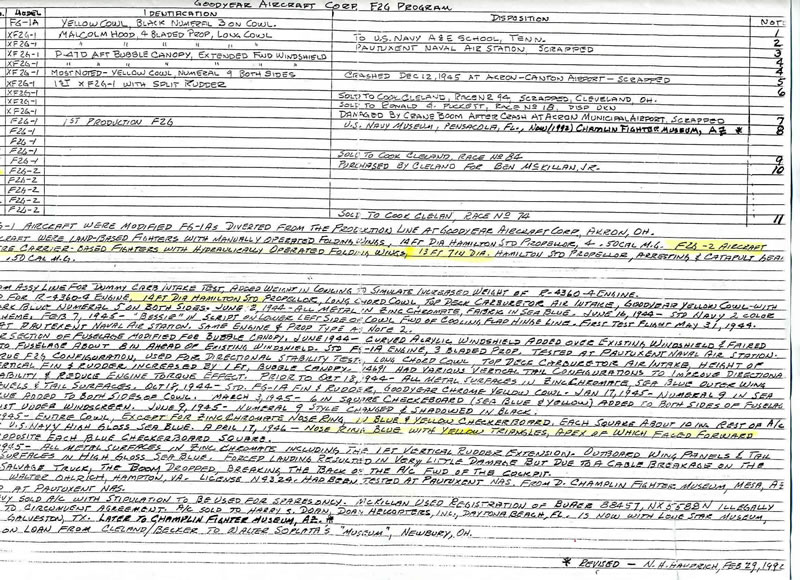 GOODYEAR AIRCRAFT CORP. F2G PROGRAM
MODEL IDENTIFICATION DISPOSITION NOTE
FG-1A YELLOW COWL, BLACK NUMERAL 3 ON COWL.
XF2G-1 MALCOLM HOOD, 4 BLADED PROP, LONG COWL TO U.S. NAVY A&E SCHOOL, TENN. 1
XF2G-1 " " " " PAUTUXENT NAVAL AIR STATION, SCRAPPED 2
XF2G-1 P-47D AFT BUBBLE CANOPY, EXTENDED FWD WINDSHIELD 3
XF2G-1 " " " " 4
XF2G-1 MOST NOTED - YELLOW COWL NUMERAL 9 BOTH SIDES CRASHED DEC 12, 1945 AT ACRON-CANTON AIRPORT - SCRAPPED 4
XF2G-1 1ST XF2G-1 WITH SPLIT RUDDER 5
XF2G-1 SOLD TO COOK CLELAND, RACE NO 94 SCRAPPED, CLEVELAND, OH. 6
XF2G-1 SOLD TO RONALD G. PUCKETT, RACE NO 18, DISP UKN
F2G-1 DAMAGED BY CRANE BOOM AFTER CRASH AT ACRON MUNICIPAL AIRPORT, SCRAPPED 7
F2G-1 1ST PRODUCTION F2G U.S. NAVY MUSEUM, PENSACOLA, FL., NOW (1992) CHAMLIN FIGHTER MUSEUM, AZ * 8
F2G-1
F2G-1
F2G-1 SOLD TO COOK CLELAND, RACE NO 84 9
F2G-2 PURCHASED BY CLELAND FOR BEN MCKILLAN, JR. 10
F2G-2
F2G-2
F2G-2
F2G-2 SOLD TO COOK CLELAN, RACE NO 74 11
G-1 AIRCRAFT WERE MODIFIED FG-1AS DIVERTED FROM THE PRODUCTION LINE AT GOODYEAR AIRCRAFT CORP, AKRON, OH.
CRAFT WERE LAND-BASED FIGHTERS WITH MANUALLY OPERATED FOLDING WINGS, 14 FT DIA HAMILTON STD PROPELLOR, 4 .50CAL M.G. F2G-2 AIRCRAFT
ERE CARRIER-BASED FIGHTERS WITH HYDRAULICALLY OPERATED FOLDING WINGS, 13 FT 7 IN DIA. HAMILTON STD PROPELLOR, ARRESTING & CATAPULT GEAR
.50 CAL M.G.
OM ASSY LINE FOR DUMMY CARB INTAKE TEST, ADDED WEIGHT IN COWLING TO SIMULATE INCREASED WEIGHT OF R-4360-4 ENGINE.
D FOR R-4360-4 ENGINE, 14 FT DIA HAMILTON STD PROPELLOR, LONG CHORD COWL, TOP DECK CARBURETOR AIR INTAKE, GOODYEAR YELLOW COWL-WITH
RK BLUE NUMERAL 5 ON BOTH SIDES. JUNE 2, 1944 - ALL METAL IN ZINC CHROMATE, FABRIC IN SEA BLUE. JUNE 16, 1944 - STD NAVY 2 COLOR
HEME. FEB 7, 1945 - "BESSIE" IN SCRIPT ON LOWER LEFT SIDE OF COWL FWD OF COOLING FLAP HINGE LINE. FIRST TEST FLIGHT MAY 31, 1944.
AT PAUTUXENT NAVAL AIR STATION. SAME ENGINE & PROP TYPE AS NOTE 2.
ER SECTION OF FUSELAGE MODIFIED FOR BUBBLE CANOPY. JUNE 1944 - CURVED ACRYLIC WINDSHIELD ADDED OVER EXISTING WINDSHIELD & FAIRED
TO FUSELAGE ABOUT 8 IN AHEAD OF EXISTING WINDSHIELD. STD FG-1A ENGINE, 3 BLADED PROP. TESTED AT PAUTUXENT NAVAL AIR STATION.
RUE F2G CONFIGURATION, USED FOR DIRECTIONAL STABILITY TEST, LONG CHORD COWL, TOP DECK CARBURETOR AIR INTAKE, HEIGHT OF
ERTICAL FIN & RUDDER INCREASED BY 1 FT, BUBBLE CANOPY. 14691 HAD VARIOUS VERTICAL TAIL CONFIGURATIONS TO IMPROVE DIRECTIONAL
ABILITY & REDUCE ENGINE TORQUE EFFECT. PRIOR TO OCT 18, 1944 - ALL METAL SURFACES IN ZINC CHROMATE, SEA BLUE OUTER WING
NELS & TAIL SURFACES. OCT 18, 1944 - STD. FG-1A FIN & RUDDER, GOODYEAR CHROME YELLOW COWL. JAN 17, 1945 - NUMERAL 9 IN SEA
LUE ADDED TO BOTH SIDES OF COWL. MARCH 3, 1945 - 6 IN SQUARE CHECKERBOARD (SEA BLUE & YELLOW) ADDED TO BOTH SIDES OF FUSELAG
UST UNDER WINDSCREEN. JUNE 9, 1945 - NUMERAL 9 STYLE CHANGED & SHADOWED IN BLACK.
1945 - ENTIRE COWL, EXCEPT FOR ZINC CHROMATE NOSE RING, IN BLUE & YELLOW CHECKERBOARD. EACH SQUARE ABOUT 10 IN, REST OF A/C
U.S. NAVY HIGH GLOSS SEA BLUE. APRIL 17, 1946 - NOSE RING BLUE WITH YELLOW TRIANGLES, APEX OF WHICH FACED FORWARD
PPOSITE EACH BLUE CHECKERBOARD SQUARE.
1945 - ALL METAL SURFACES IN ZINC CHROMATE INCLUDING THE 1 FT VERTICAL RUDDER EXTENSION. OUTBOARD WING PANELS & TAIL
SURFACES IN HIGH GLOSS SEA BLUE. FORCED LANDING RESULTED IN VERY LITTLE DAMAGE BUT DUE TO A CABLE BREAKAGE ON THE
SALVAGE TRUCK, THE BOOM DROPPED, BREAKING THE BACK OF THE A/C FWD OF THE COCKPIT.
WALTER OHLRICH, HAMPTON, VA. LICENSE N4324. HAD BEEN TESTED AT PAUTUXENT NAS. FROM D. CHAMPLIN FIGHTER MUSEUM, MESA, AZ
D AT PAUTUXENT NAS.
VY SOLD A/C WITH STIPULATION TO BE USED FOR SPARES ONLY. MCKILLAN USED REGISTRATION OF BUAER 88457, NX5588N ILLEGALLY
TO CIRCUMVENT AGREEMENT. A/C SOLD TO HARRY S. DOAN, DOAN HELICOPTERS, INC., DAYTONA BEACH, FL. IS NOW WITH LONE STAR MUSEUM,
GALVESTON, TX. LATER TO CHAMPLIN FIGHTER MUSEUM, AZ. *
ON LOAN FROM CLELAND/BECKER TO WALTER SOPLATA'S "MUSEUM", NEWBURY, OH.
* REVISED - N. H. HAUPRICH, FEB 29, 1992